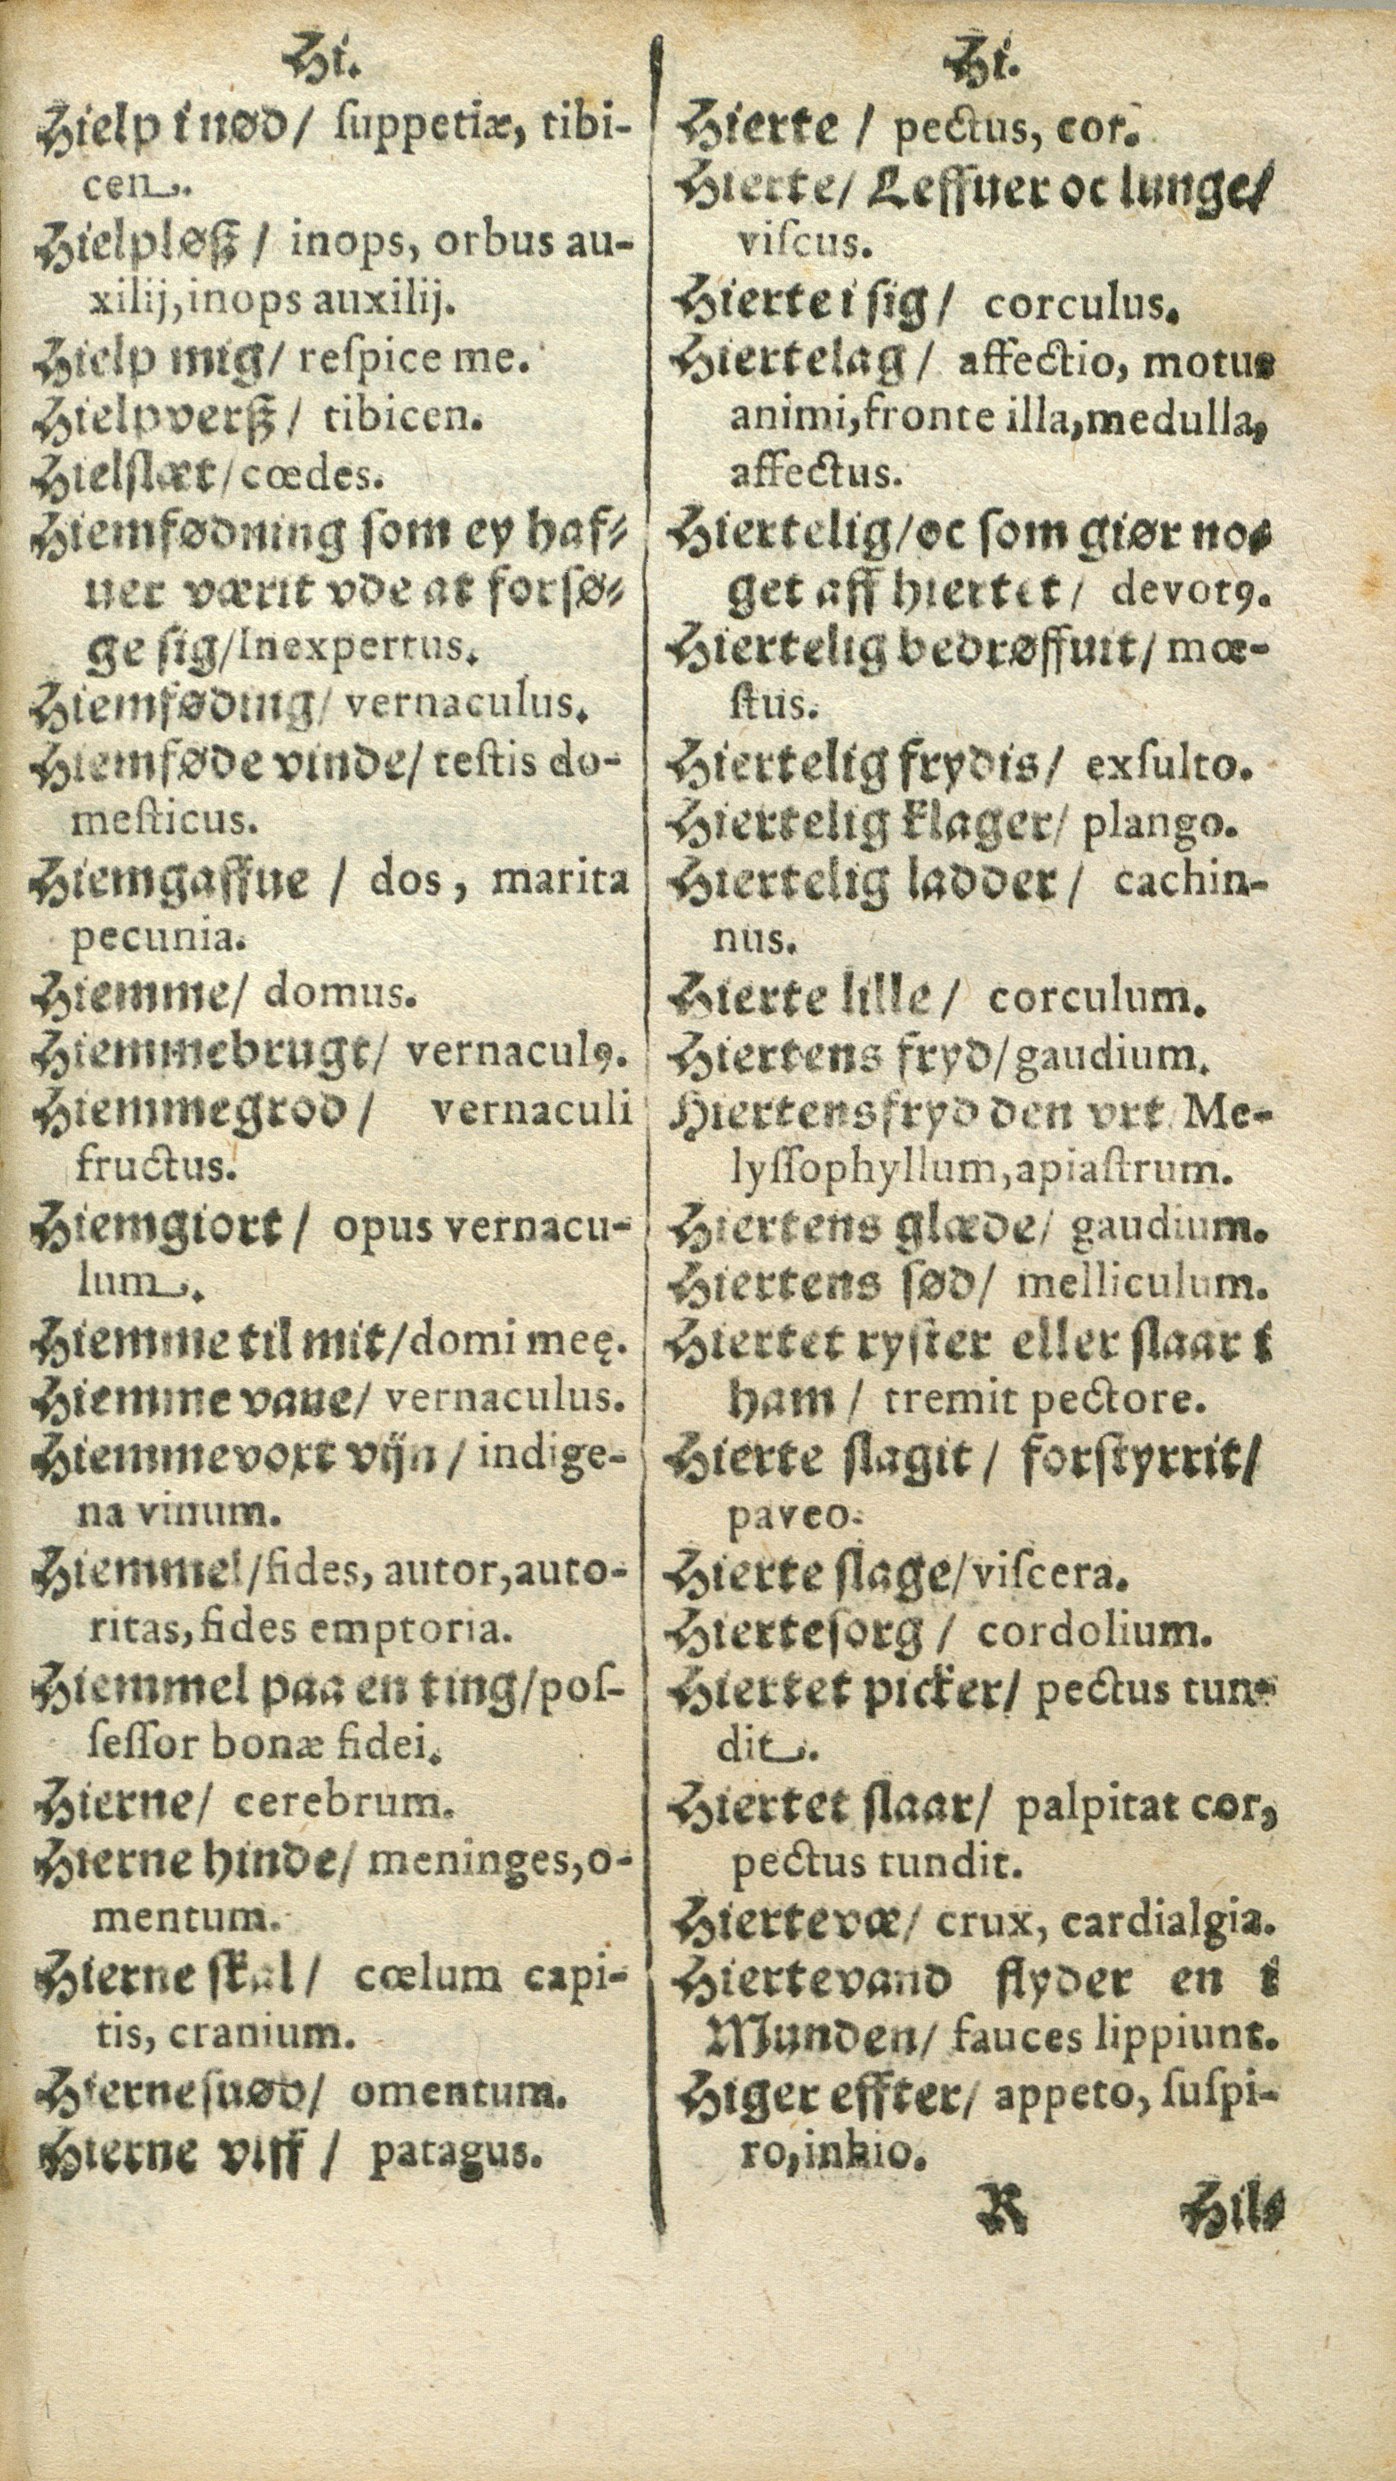 Hi.
Hielp i nød/ ſuppetiæ, tibi-
cen.
Hielpløß/ inops, orbus au-
xilij, inops auxilij.
Hielp mig/ reſpice me.
Hielpverß/ tibicen.
Hielſlæt/ cœdes.
Hiemfødning ſom ey haf-
uer værit vde at forſø-
ge ſig/ Inexpertus.
Hiemføding/ vernaculus.
Hiemføde vinde/ teſtis do-
meſticus.
Hiemgaffue/ dos, marita
pecunia.
Hiemme/ domus.
Hiemmebrugt/ vernaculꝰ.
Hiemmegrod/ vernaculi
fructus.
Hiemgiort/ opus vernacu-
lum.
Hiemme til mit/ domi meę.
Hiemme vaue/ vernaculus.
Hiemmevort vijn/ indige-
na vinum.
Hiemmel/ fides, autor, auto-
ritas, fides emptoria.
Hiemmel paa en ting/ poſ-
ſeſſor bonæ fidei.
Hierne/ cerebrum.
Hierne hinde/ meninges, o-
mentum.
Hierne ſkal/ cœlum capi-
tis, cranium.
Hierneſuød/ omentum.
Hierne viff/ patagus.
Hi.
Hierte/ pectus, cor.
Hierte/ Leffuer oc lunge/
viſcus.
Hierte i ſig/ corculus.
Hiertelag/ affectio, motus
animi, fronte illa, medulla,
affectus.
Hiertelig/ oc ſom giør no-
get aff hiertet/ devotꝰ.
Hiertelig bedrøffuit/ mœ-
ſtus.
Hiertelig frydis/ exſulto.
Hiertelig klager/ plango.
Hiertelig ladder/ cachin-
nus.
Hierte lille/ corculum.
Hiertens fryd/ gaudium.
Hiertensfryd den vrt Me-
lyſſophyllum, apiaſtrum.
Hiertens glæde/ gaudium.
Hiertens ſød/ melliculum.
Hiertet ryſter eller ſlaar i
ham/ tremit pectore.
Hierte ſlagit/ forſtyrrit/
paveo.
Hierte ſlage/ viſcera.
Hierteſorg/ cordolium.
Hiertet picker/ pectus tun-
dit.
Hiertet ſlaar/ palpitat cor,
pectus tundit.
Hiertevæ/ crux, cardialgia.
Hiertevand flyder en i
Munden/ fauces lippiunt.
Higer effter/ appeto, ſuſpi-
ro, inhio.
R Hil-